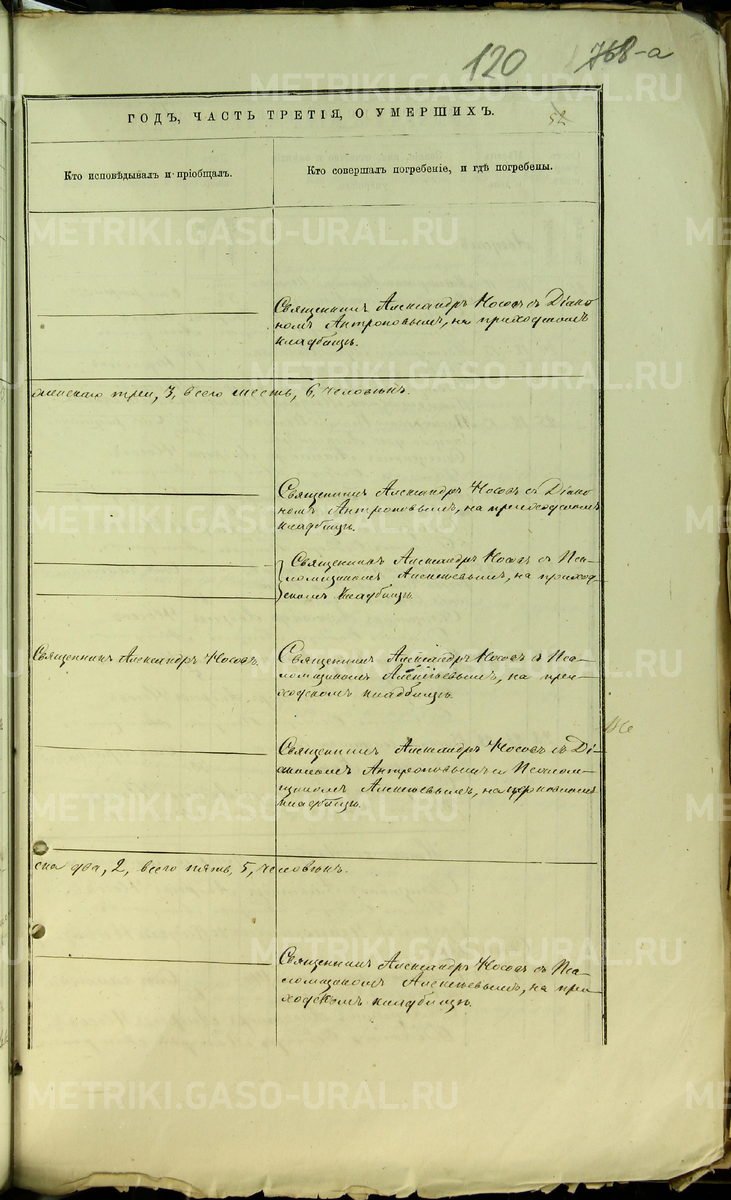 120 768-а
ГОДЪ, ЧАСТЬ ТРЕТІЯ, О УМЕРШИХЪ.
52
Кто исповѣдывалъ и пріобщалъ.
Кто совершалъ погребеніе, и гдѣ погребены.
Священникъ Александръ Носовъ съ Діако-
номъ Антроповымъ, на приходскомъ
кладбищѣ.
женскаго три, 3, всего шесть, 6, человѣкъ.
Священникъ Александръ Носовъ съ Діако-
номъ Антроповымъ, на приходскомъ
кладбищѣ.
Священникъ Александръ Носовъ съ Пса-
ломщикомъ Алексѣевымъ, на приход-
скомъ кладбищѣ.
Священникъ Александръ Носовъ.
Священникъ Александръ Носовъ съ Пса-
ломщикомъ Алексѣевымъ, на при-
ходскомъ кладбищѣ.
Священникъ Александръ Носовъ съ Ді-
акономъ Антроповымъ и Псалом-
щикомъ Алексѣевымъ, на церковномъ
кладбищѣ.
ска два, 2, всего пять, 5, человѣкъ.
Священникъ Александръ Носовъ съ Пса-
ломщикомъ Алексѣевымъ, на при-
ходскомъ кладбищѣ.
METRIKI.GASO-URAL.RU